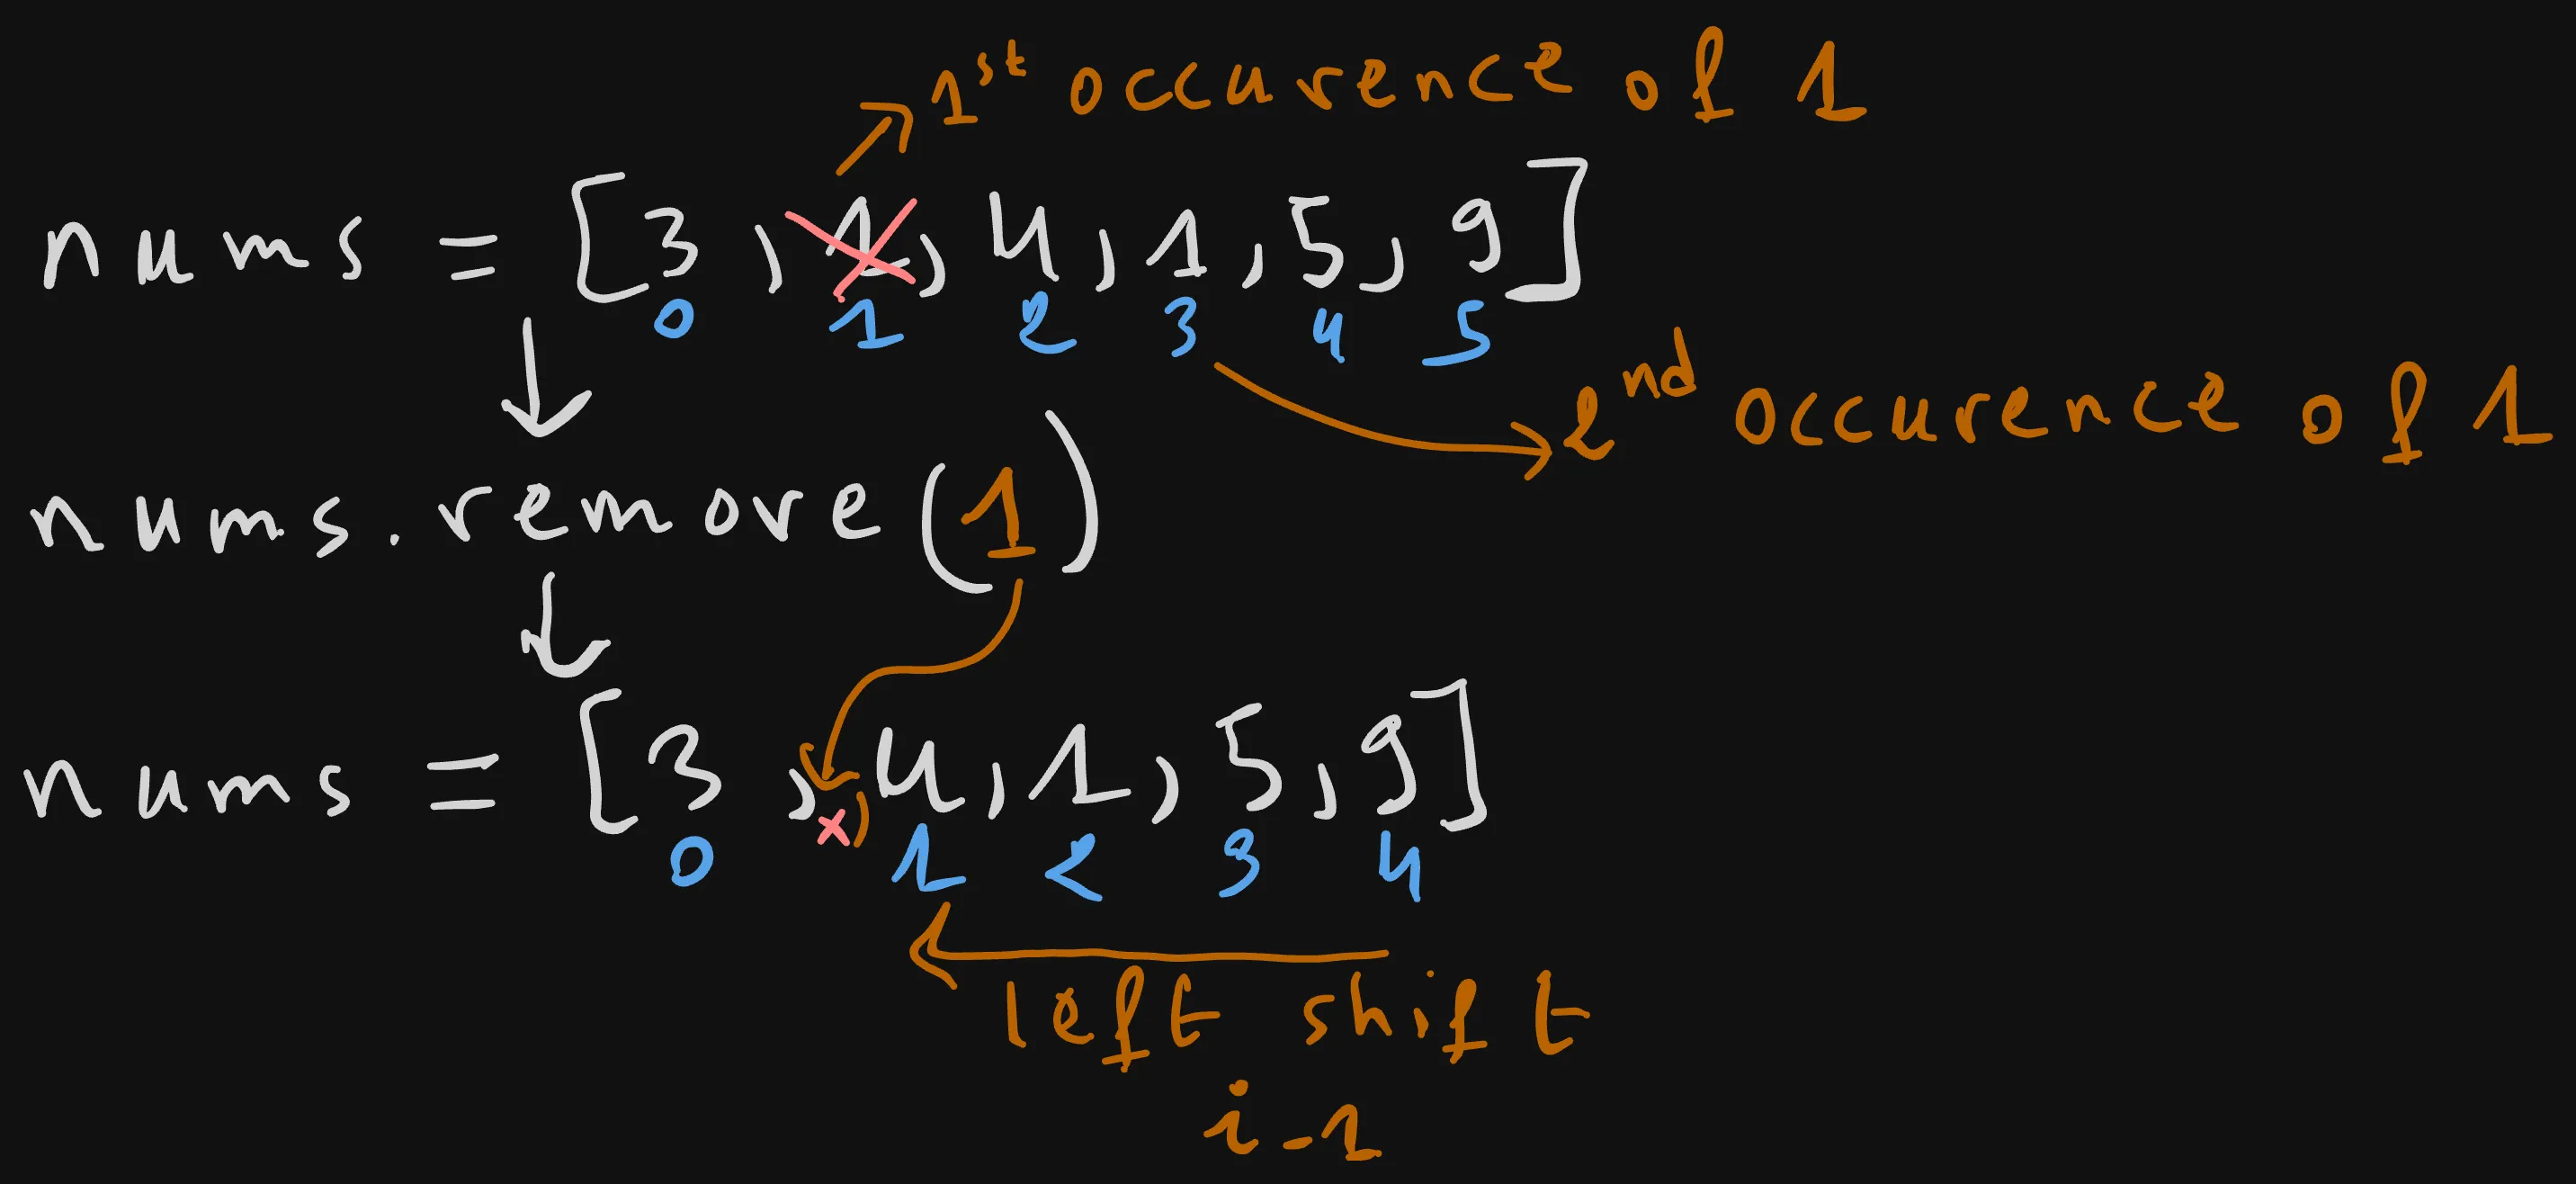 1st occurence of 1
nums = [3, 1, 4, 1, 5, 9]
0 1 2 3 4 5
2nd occurence of 1
nums.remove(1)
nums = [3, 4, 1, 5, 9]
0 1 2 3 4
left shift
i-1